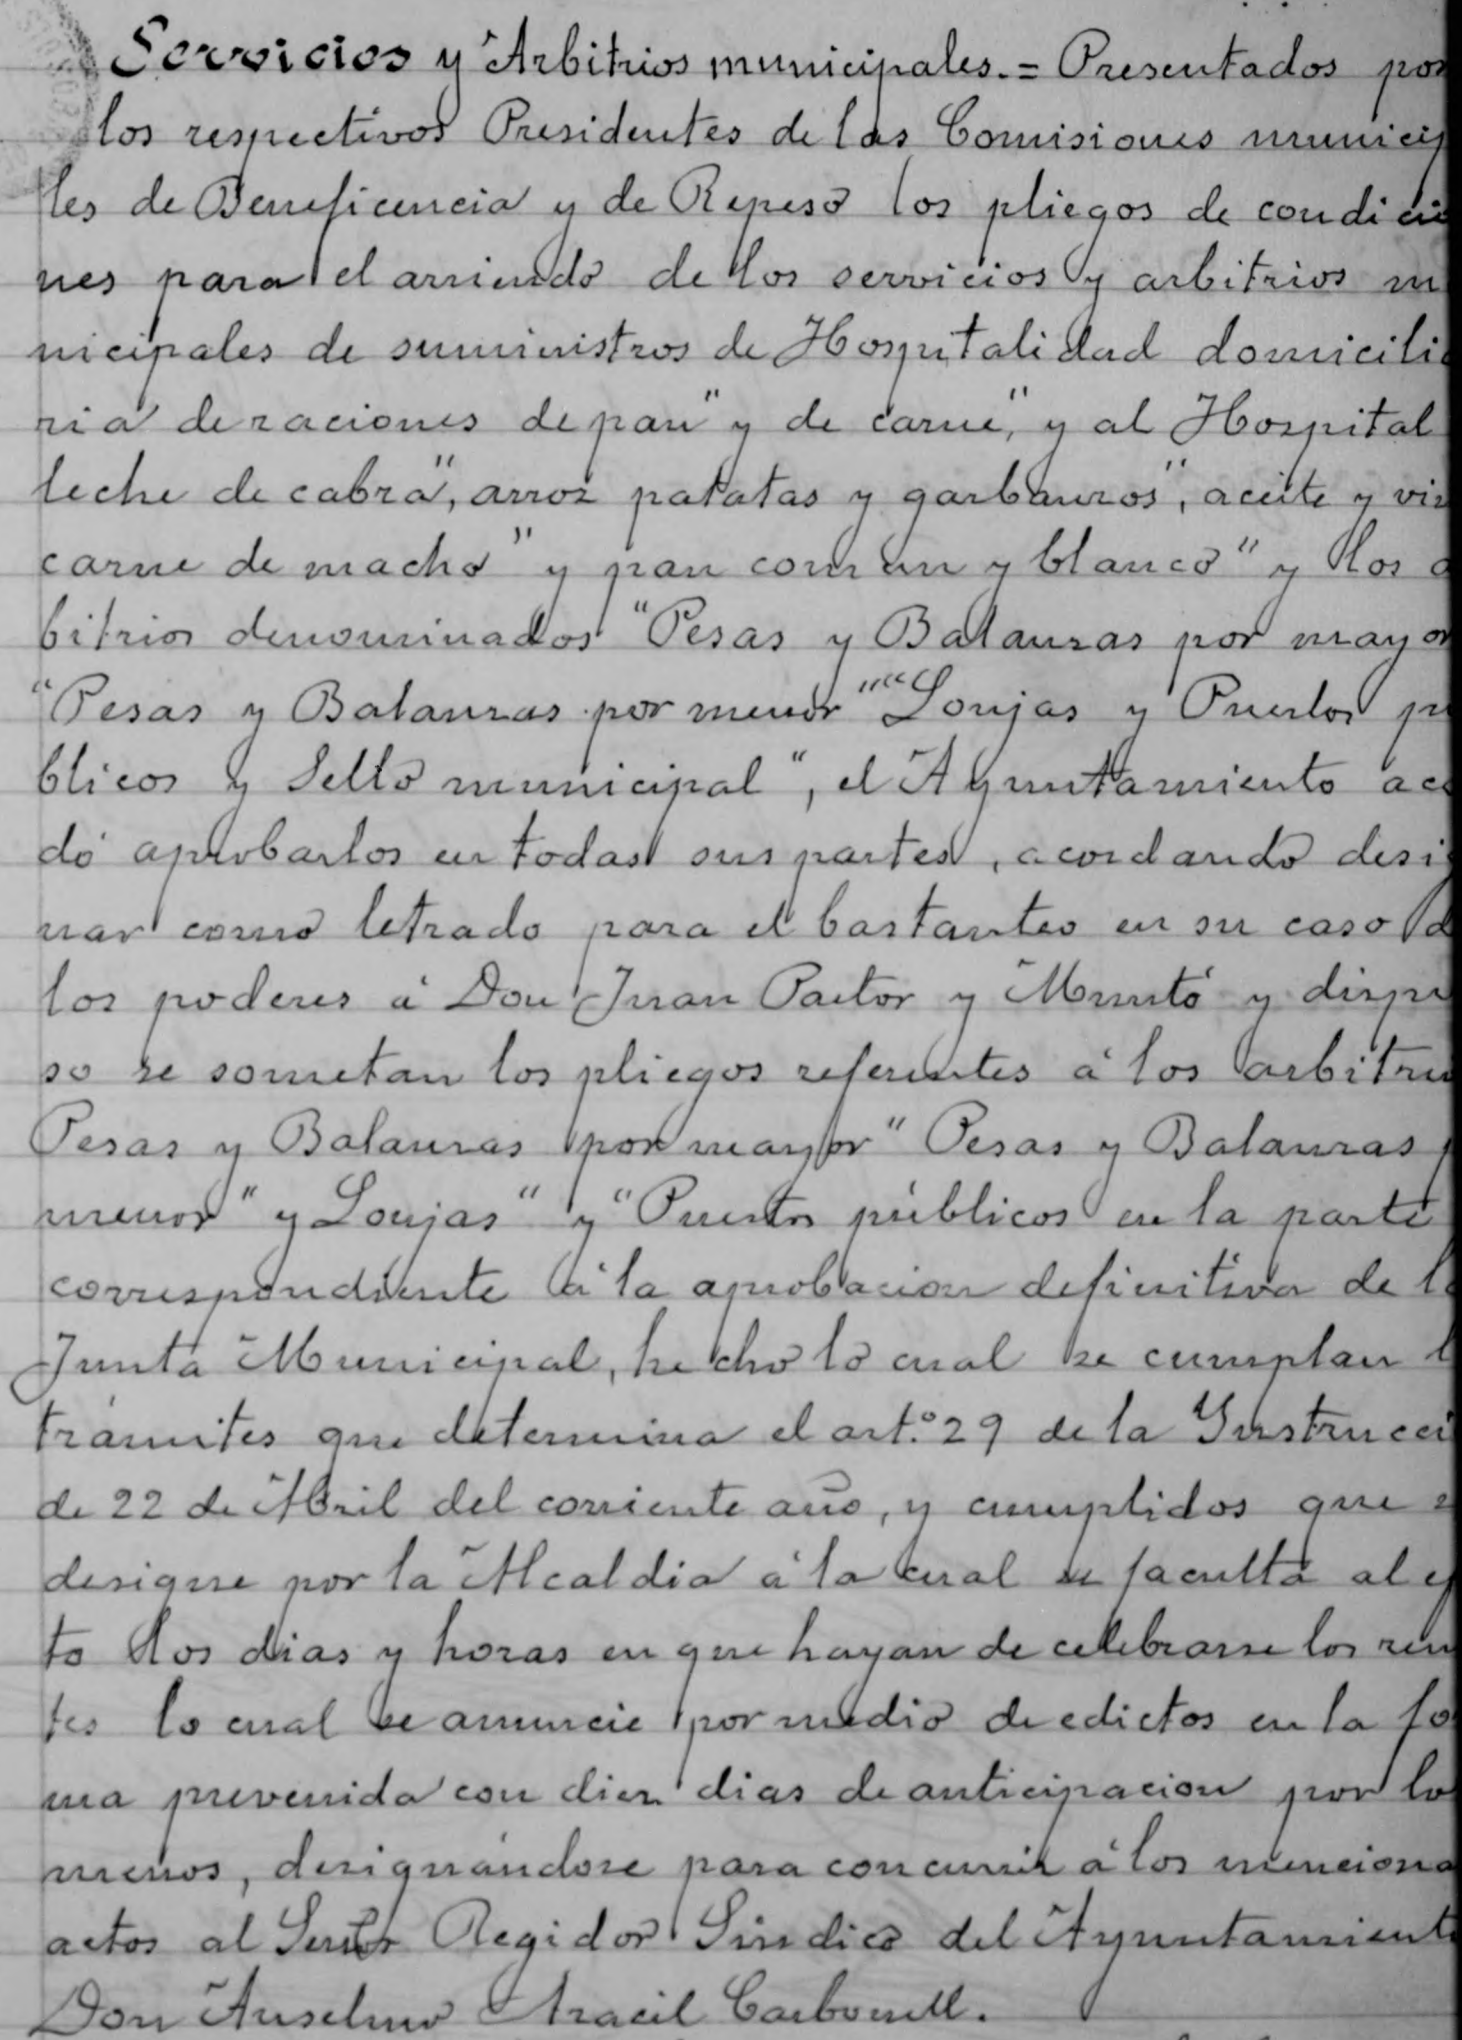 Servicios y Arbitrios municipales. = Presentados por
los respectivos Presidentes de las Comisiones municip
les de Beneficencia y de Repeso los pliegos de condicio
nes para el arriendo de los servicios y arbitrios m
nicipales de suministros de Hospitalidad domicilia
ria de raciones de pan" y de carne", y al Hospital
leche de cabra", arroz patatas y garbanzos", aceite y vin
carne de macho" y pan comun y blanco" y los a
bitrios denominados "Pesas y Balanzas por mayor
"Pesas y Balanzas por menor" "Lonjas y Puestos pu
blicos y Sello municipal", el Ayuntamiento aco
dó aprobarlos en todas sus partes, acordando desig
nar como letrado para el bastanteo en su caso d
los poderes á Don Juan Pastor y Muntó y dispu
so se sometan los pliegos referentes á los arbitrio
Pesas y Balanzas por mayor" Pesas y Balanzas p
menor" y Lonjas" y "Puestos públicos en la parte
correspondiente á la aprobacion definitiva de la
Junta Municipal, hecho lo cual se cumplan l
tramites que determina el art.º 29 de la Instrucci
de 22 de Abril del corriente año, y cumplidos que s
designe por la Alcaldia á la cual se faculta al ef
to los dias y horas en que hayan de celebrarse los rem
tes lo cual se anuncie por medio de edictos en la fo
ma prevenida con diez dias de anticipacion por lo
menos, designándose para concurrir á los menciona
actos al Señor Regidor Sindico del Ayuntamiento
Don Anselmo Aracil Carbonell.